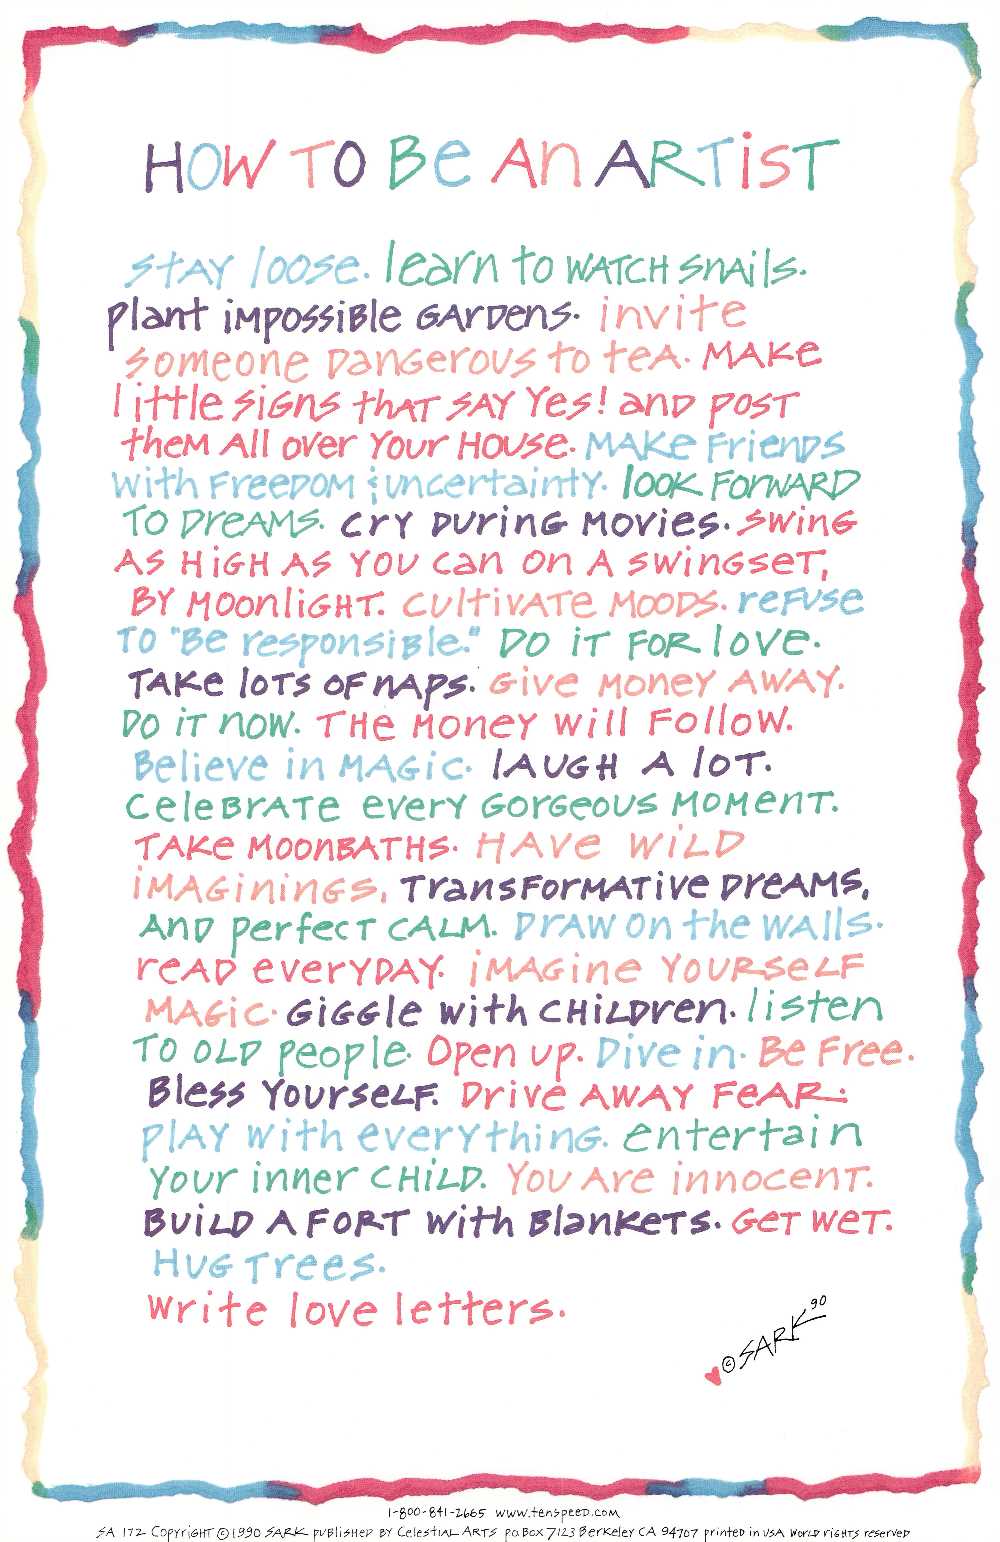 HOW TO BE AN ARTIST
stay loose. learn to WATCH snails.
plant impossible GARDens. invite
someone DANGEROUS to teA. MAKe
little SIGNS that SAY Yes! and post
them All over Your HOUSE. MAKe Friends
with FreeDOM & uncertainty. look FORWARD
TO DreAMS. CRY DURING MOVIES. SWING
AS HIGH AS YOU can on A swingset,
BY MOONLIGHT. CULTIVATE MOODS. reFuse
TO "Be responsible." DO iT FOR love.
TAKe lOTS OF NAps. Give Money AWAY.
DO iT NOW. THe Money will Follow.
Believe in MAGic. lAUGH A lOT.
CeleBRATe every GORGeous MOMent.
TAKe MOONBATHS. HAVe WiLD
iMAGininGs, TransFORMATive DReAMS,
AnD perfecT CALM. DRAW on the WAlls.
reAD everyDAY. iMAGine YOURSeLF
MAGic. GiGGle with CHiLDren. listen
TO OLD people. Open up. Dive in. Be Free.
Bless YOURSeLF. Drive AWAY FeAR.
plAY with everything. entertain
Your inner CHiLD. YOU Are innocent.
BuiLD A FORT with BlanKeTs. GeT WeT.
HUG Trees.
write love letters.
©SARK 90
1-800-841-2665 www.tenspeed.com
SA 172 Copyright ©1990 SARK publisheD BY Celestial ARTS p.o. Box 7123 Berkeley CA 94707 printed in USA World rights reserved